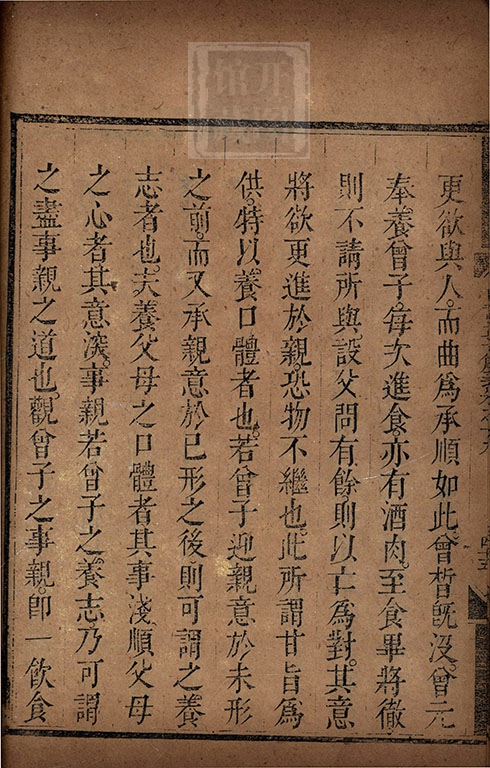 更欲與人。而曲爲承順如此。曾晳旣沒。曾元
奉養曾子。每次進食亦有酒肉。至食畢將徹
則不請所與。設父問有餘。則以亡爲對。其意
將欲更進於親。恐物不繼也。此所謂甘旨爲
供。特以養口體者也。若曾子迎親意於未形
之前。而又承親意於已形之後則可謂之養
志者也。夫養父母之口體者其事淺順父母
之心者其意深。事親若曾子之養志乃可謂
之盡事親之道也。觀曾子之事親。卽一飲食